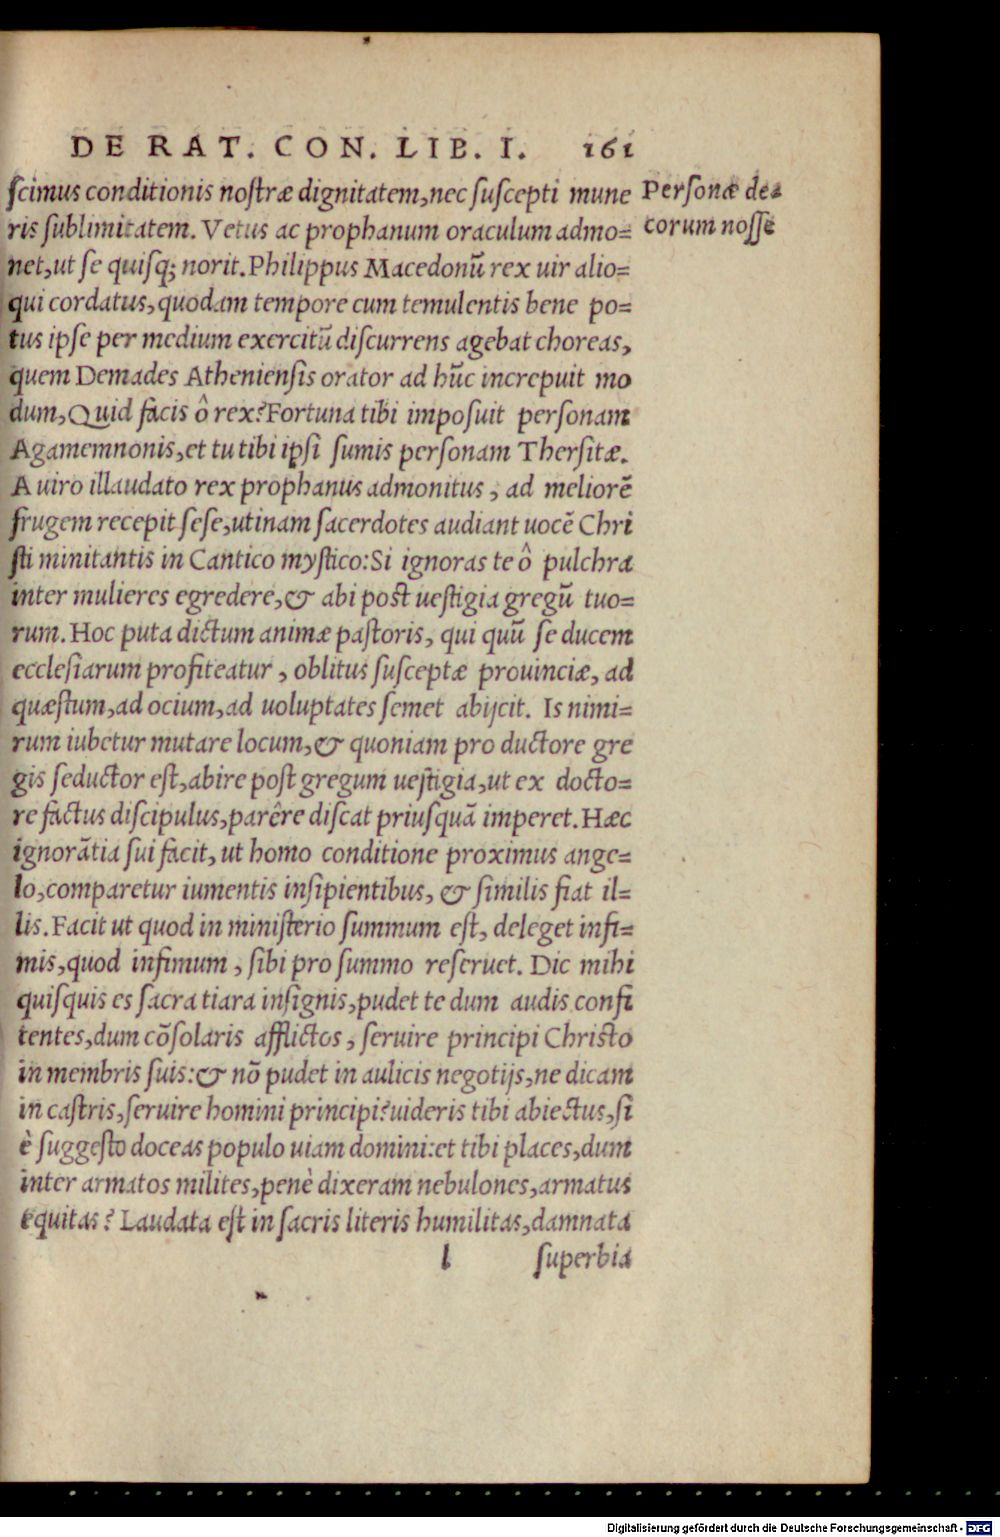 DE RAT. CON. LIB. I. 161
scimus conditionis nostræ dignitatem, nec suscepti mune
ris sublimitatem. Vetus ac prophanum oraculum admo=
net, ut se quisq; norit. Philippus Macedonũ rex uir alio=
qui cordatus, quodam tempore cum temulentis bene po=
tus ipse per medium exercitũ discurrens agebat choreas,
quem Demades Atheniensis orator ad hũc increpuit mo
dum, Quid facis ô rex? Fortuna tibi imposuit personam
Agamemnonis, et tu tibi ipsi sumis personam Thersitæ.
A uiro illaudato rex prophanus admonitus, ad meliorẽ
frugem recepit sese, utinam sacerdotes audiant uocẽ Chri
sti minitantis in Cantico mystico: Si ignoras te ô pulchra
inter mulieres egredere, & abi post uestigia gregũ tuo=
rum. Hoc puta dictum animæ pastoris, qui quũ se ducem
ecclesiarum profiteatur, oblitus susceptæ prouinciæ, ad
quæstum, ad ocium, ad uoluptates semet abijcit. Is nimi=
rum iubetur mutare locum, & quoniam pro ductore gre
gis seductor est, abire post gregum uestigia, ut ex docto=
re factus discipulus, parêre discat priusquã imperet. Hæc
ignorãtia sui facit, ut homo conditione proximus ange=
lo, comparetur iumentis insipientibus, & similis fiat il=
lis. Facit ut quod in ministerio summum est, deleget infi=
mis, quod infimum, sibi pro summo reseruet. Dic mihi
quisquis es sacra tiara insignis, pudet te dum audis confi
tentes, dum cõsolaris afflictos, seruire principi Christo
in membris suis: & nõ pudet in aulicis negotijs, ne dicam
in castris, seruire homini principi? uideris tibi abiectus, si
è suggesto doceas populo uiam domini: et tibi places, dum
inter armatos milites, penè dixeram nebulones, armatus
equitas? Laudata est in sacris literis humilitas, damnata
l superbia
Personæ de=
corum nosse
Digitalisierung gefördert durch die Deutsche Forschungsgemeinschaft - DFG